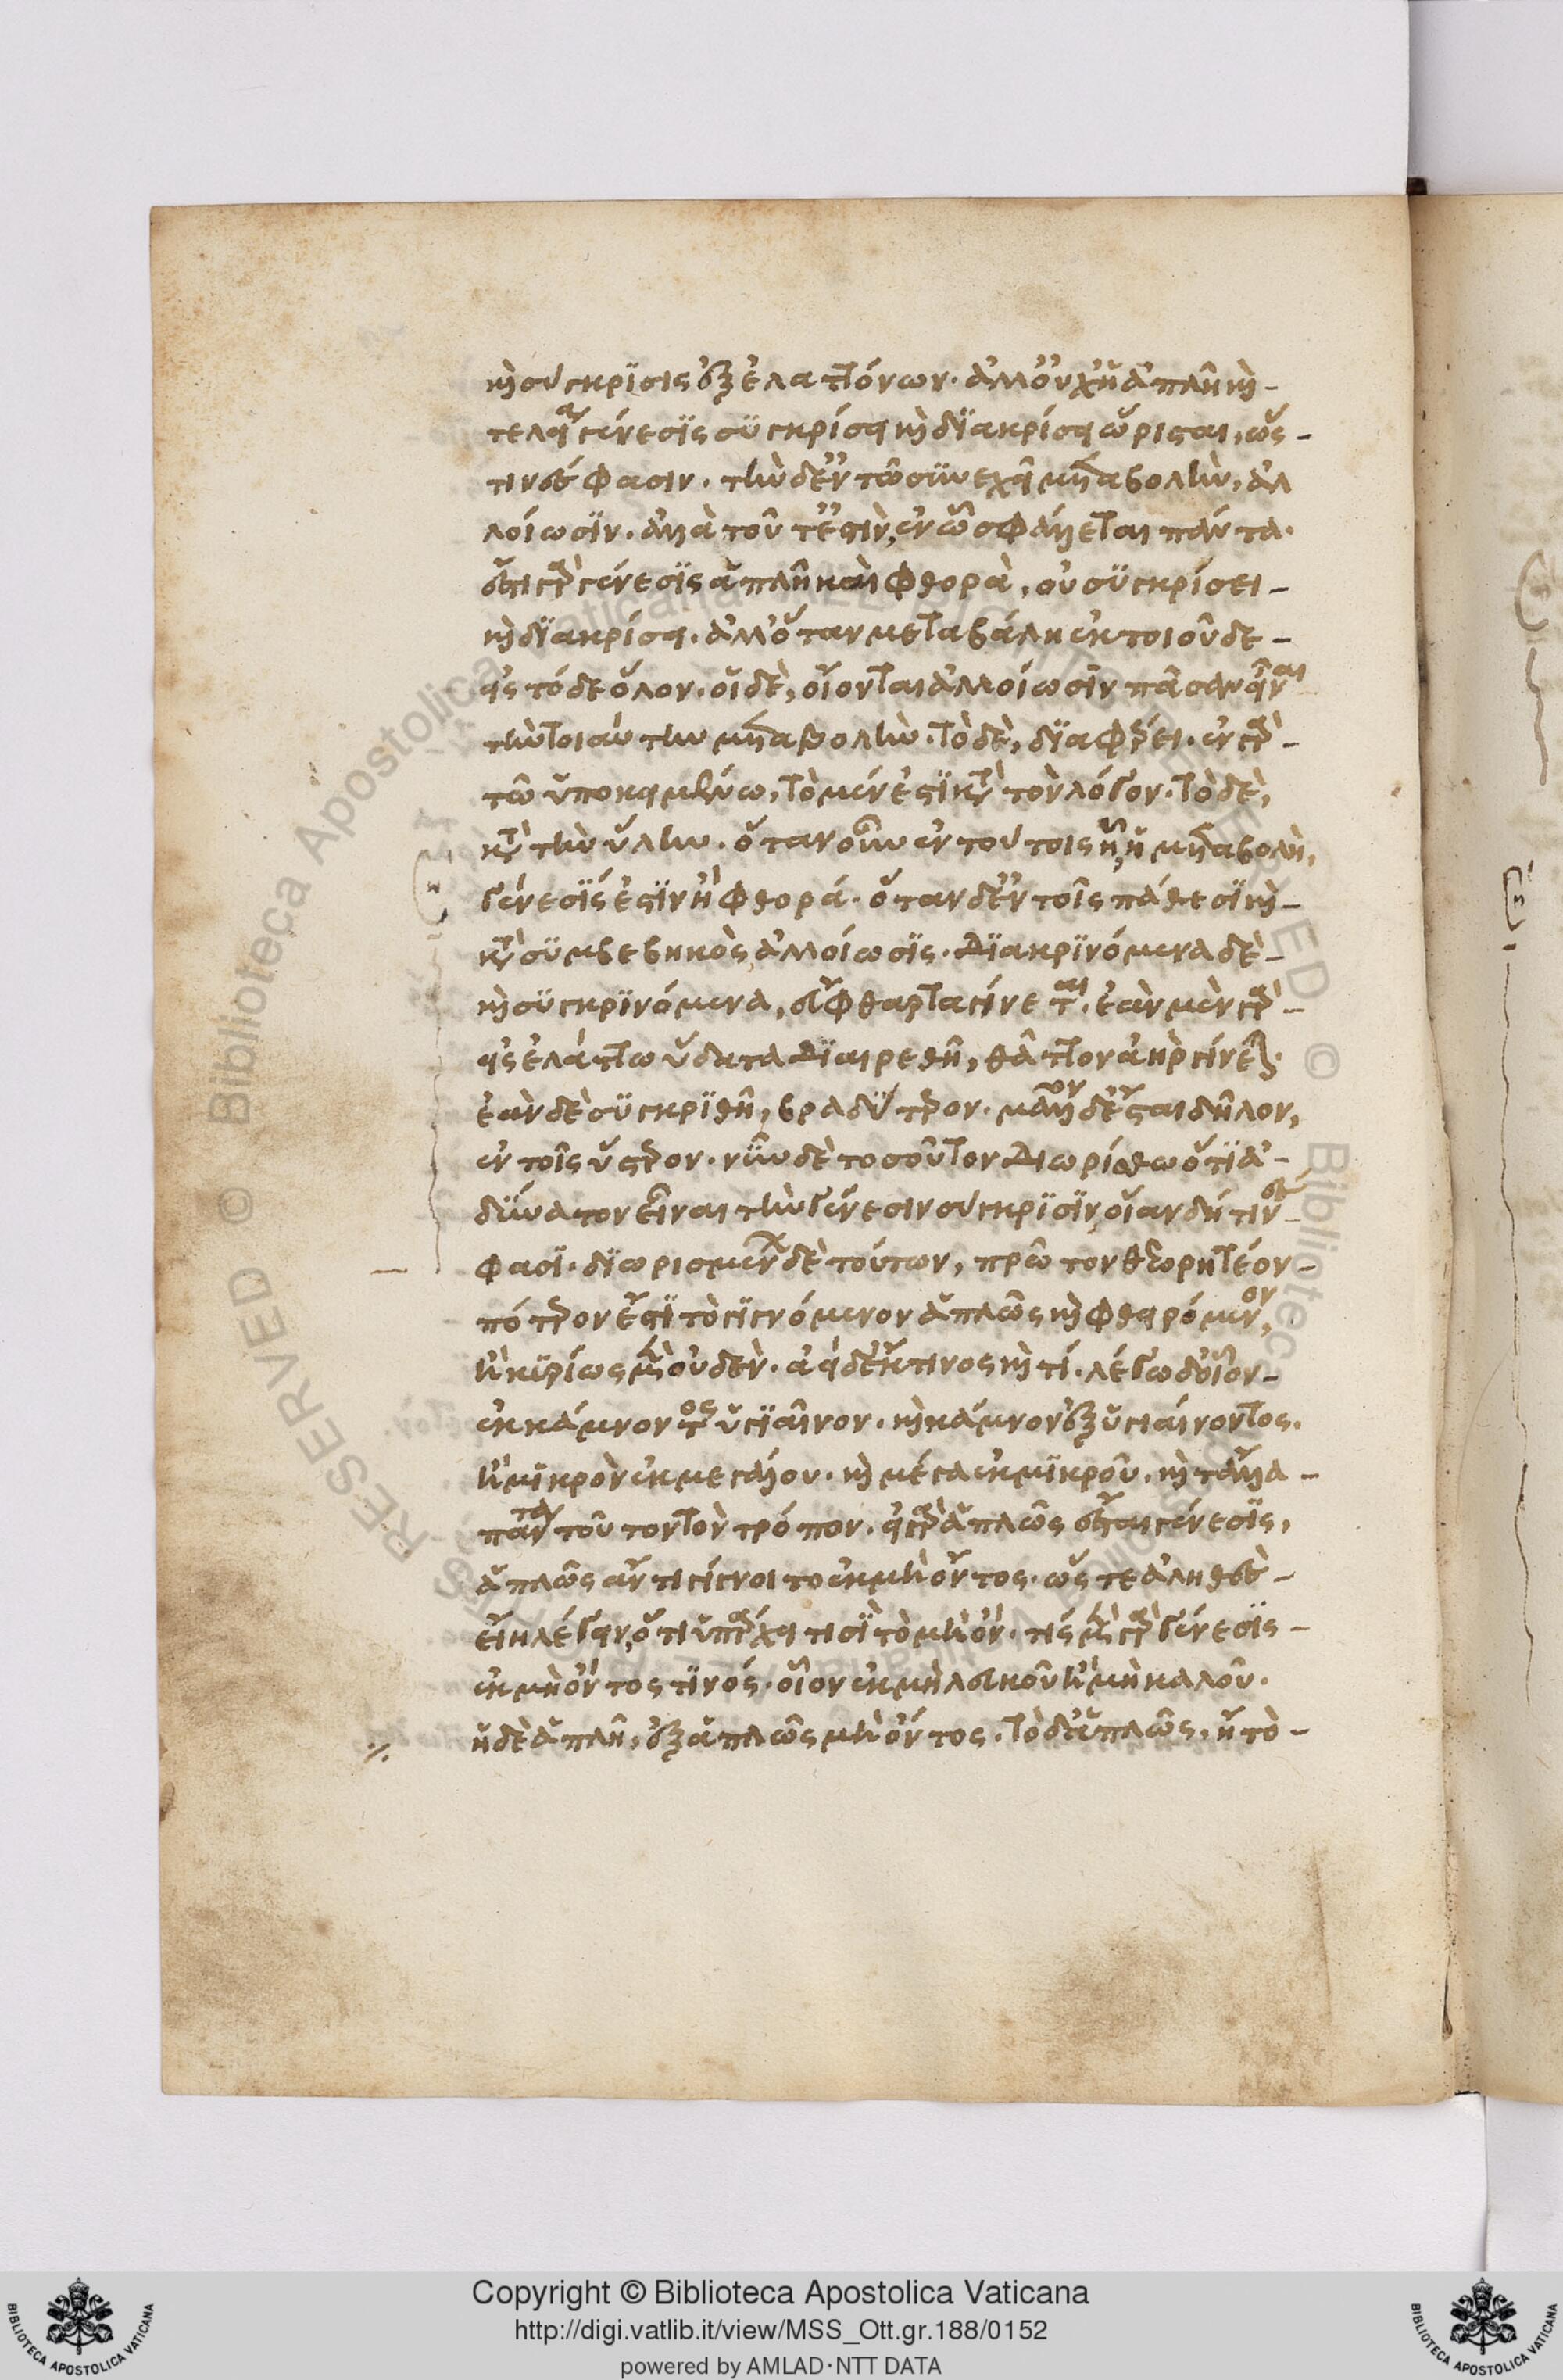 καὶ σύγκρϊσις ἐξ ἐλαττόνων. ἀλλ' οὐχ ἡ ἁπλῆ καὶ
τελεία γένεσϊς συγκρίσει καὶ δϊακρίσει ὥρισται, ὥς
τινές φασιν. τὴν δ' ἐν τῶ συνεχεῖ μεταβολὴν, ἀλ
λοίωσϊν. ἀλλὰ τοῦτ' ἔστιν, ἐν ὧ σφάλλεται πάντα.
ἔστι γὰρ γένεσϊς ἁπλῆ καὶ φθορὰ, οὐ συγκρίσει
καὶ δϊακρίσει. ἀλλ' ὅταν μεταβάλη ἐκ τοιοῦδε
εἰς τόδε ὅλον. οἱ δὲ, οἴονται ἀλλοίωσϊν πᾶσαν εἶναι
τὴν τοιαύτην μεταβολὴν. τὸ δὲ, δϊαφέρει. ἐν γὰρ
τῶ ὑποκειμένω, τὸ μέν ἐστϊ κατὰ τὸν λόγον. τὸ δὲ,
κατὰ τὴν ὕλην. ὅταν οὖν ἐν τούτοις ἦ, ἡ μεταβολὴ,
γένεσϊς ἐστϊν ἢ φθορά. ὅταν δ' ἐν τοῖς πάθεσϊ καὶ
κατὰ συμβεβηκὸς, ἀλλοίωσϊς. δϊακρϊνόμενα δὲ
καὶ συγκρϊνόμενα, εὔφθαρτα γίνεται. ἐὰν μὲν γὰρ
εἰς ἐλάττω ὕδατα δϊαιρεθῆ, θᾶττον ἀὴρ γίνεται.
ἐὰν δὲ συγκρϊθῆ, βραδύτερον. μᾶλλον δ' ἔσται δῆλον,
ἐν τοῖς ὕστερον. νῦν δὲ τοσοῦτον διωρίσθω ὅτϊ ἀ
δύνατον εἶναι τὴν γένεσιν σύγκρϊσϊν, οἵαν δή τινές
φασϊ. δϊωρισμένων δὲ τούτων, πρῶτον θεωρητέον
πότερον ἔστϊ τὸ γϊγνόμενον ἁπλῶς καὶ φθειρόμενον,
ἢ κυρίως μὲν οὐδὲν. ἀεὶ δ' ἔκ τινος καὶ τί. λέγω δ' οἷον
ἐκ κάμνοντος ὑγϊαῖνον. καὶ κάμνον ἐξ ὑγιαίνοντος.
ἢ μϊκρὸν ἐκ μεγάλου. καὶ μέγα ἐκ μϊκροῦ. καὶ τἄλλα
πάντα τοῦτον τὸν τρόπον. εἰ γὰρ ἁπλῶς ἔσται γένεσϊς,
ἁπλῶς ἄν τι γίγνοιτο ἐκ μὴ ὄντος. ὥστε ἀληθὲς
εἴη λέγειν, ὅτι ὑπάρχει τισϊ τὸ μὴ ὄν. τὶς μὲν γὰρ γένεσϊς
ἐκ μὴ ὄντος τϊνός. οἷον ἐκ μὴ λευκοῦ ἢ μὴ καλοῦ.
ἡ δὲ ἁπλῆ, ἐξ ἁπλῶς μὴ ὄντος. τὸ δ' ἁπλῶς, ἤτο
Copyright © Biblioteca Apostolica Vaticana
http://digi.vatlib.it/view/MSS_Ott.gr.188/0152
powered by AMLAD·NTT DATA